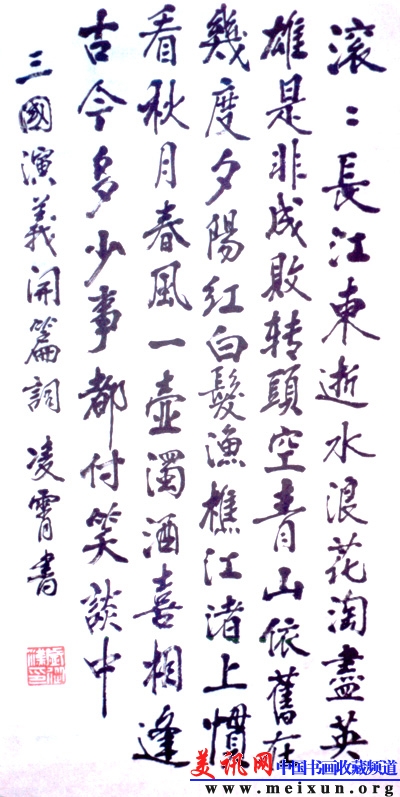 滚〻長江東逝水浪花淘盡英
雄是非成敗转頭空青山依舊在
幾度夕陽红白髮漁樵江渚上慣
看秋月春風一壺濁酒喜相逢
古今多少事都付笑談中
三國演義開篇詞 凌霄書
美讯网 中国书画收藏频道
www.meixun.org